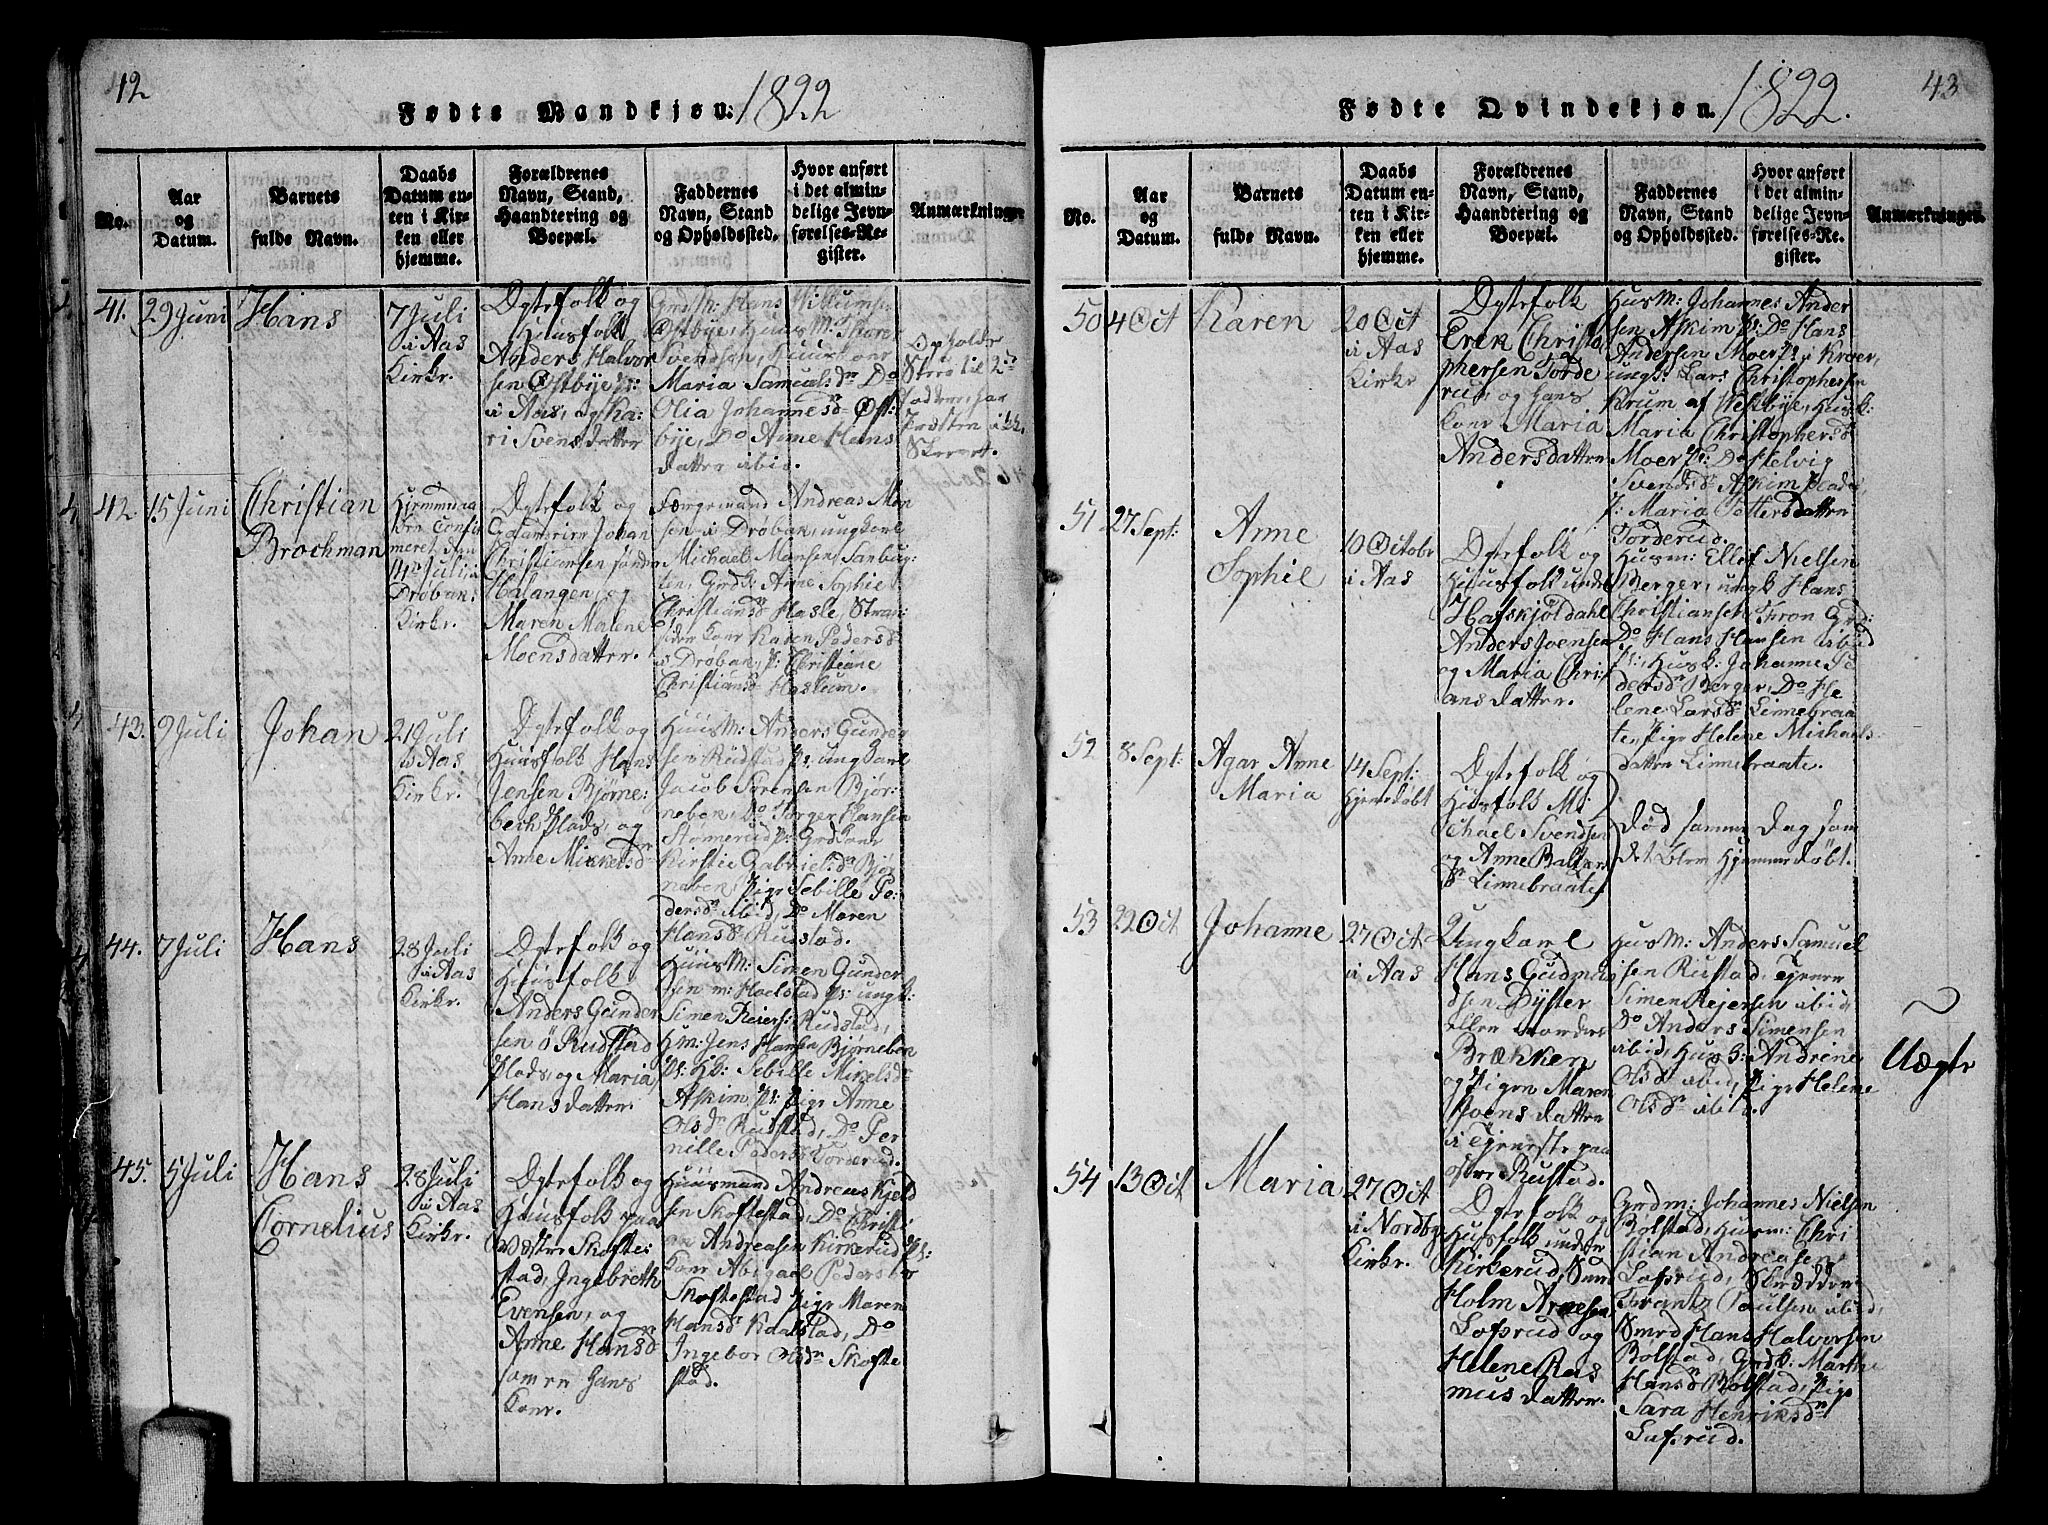 42
Fødte Mandkjøn: 1822
No.
Aar
og
Datum.
Barnets
fulde Navn.
Daabs
Datum en-
ten i Kir-
ken eller
hjemme.
Forældrenes
Navn, Stand,
Haandtering og
Boepæl.
Faddernes
Navn, Stand
og Opholdssted.
Hvor anført
i det almin-
delige Jevn-
førelses-Re-
gister.
Anmærkninger
41.
29 Juni
Hans
7 Juli
i Aas
Kirke.
Ægtefolk og
Huusfolk
Anders Halvor
sen Østbye
i Aas, og Ka:
ri Svensdatter
GrdM: Hans Willumsen
Østbye, HuusM: Thore
Svendsen, Huuskone
Maria Samuelsdr Do
Olia Johannesdr Øst:
bye, Do Anne Hans
datter ibid.
42.
15 Juni
Christian
Brochman
Hjemmedøbt
14 Juli i
Drøbak
Kirke.
Ægtefolk og
Johan
Christiansen
Halangen, og
Maren Malene
Moensdatter.
Færgemand Andreas Mon
sen i Drøbak, ungkarl
Michael Monsen
Grdk: Anne Sophie
Christiansdr Hasle,
Kone Karen Pedersdr
i Drøbak, P: Christiane
Christiansdr Haslum.
43.
9 Juli
Johan
21 Juli
i Aas
Kirke.
Ægtefolk og
Huusfolk Hans
Jensen Bjørne:
bech Plads, og
Anne Mickelsdr
HuusM: Anders Gunder
sen Rudstad Pl: ungkarl
Jacob Sørensen Bjør:
nebek, Do Torger Hansen
Kirstie Gabrielsdr Bjør
nebek, Pige Sebille Pe:
dersdr ibid, Do Maren
Hansdr Rustad.
44.
7 Juli
Hans
28 Juli
i Aas
Kirke.
Ægtefolk og
Huusfolk
Anders Gunder
sen Rudstad
Plads, og Maria
Hansdatter.
HuusM: Simen Gunder
sen Holstad Pl: ungk:
Simen Reiers: Rudstad,
Hm: Jens Hansen Bjørnebek
Pl: Hk: Sebille Mikelsdr
Askim Pl: Pige Anne
Olsdr Rustad, Do Per
nille Pedersdr Torderud.
45.
5 Juli
Hans
Cornelius
28 Juli
i Aas
Kirke.
Ægtefolk og
Huusfolk paa
Vester Skofte:
stad, Ingebreth
Evensen, og
Anne Hansdr
samme hans
Kone.
Huusmand Andreas Kjeld
sen Skoftestad, Do Christi
an Andreasen Kirkerud Pl:
Kone Abigael Pedersdr
Skoftestad Pige Maren
Hansdr Kaalstad, Do
Ingebor Olsdr Skofte
stad.
43
Fødte Qvindekjøn. 1822.
No.
Aar
og
Datum.
Barnets
fulde Navn.
Daabs
Datum en-
ten i Kir-
ken eller
hjemme.
Forældrenes
Navn, Stand,
Haandtering og
Boepæl.
Faddernes
Navn, Stand
og Opholdssted.
Hvor anført
i det almin-
delige Jevn-
førelses-Re-
gister.
Anmærkninger.
50
4 Oct
Karen
20 Oct
i Aas
Kirke
Ægtefolk
Erek Christo
phersen Torde
rud, og hans
Kone Maria
Andersdatter
HusM: Johannes Ander
sen Askim Pl: Do Hans
Andersen Moer Pl: i Kroer,
ungk: Lars Christophersen
Krum af Westbye, Husk:
Maria Christophersdr
Moer Pl: Do Helvig
Svendsdr Askim Plads,
P: Maria Pettersdatter
Torderud.
51
27 Sept:
Anne
Sophie
10 Octobr
i Aas
Ægtefolk og
Huusfolk under
Hafskjøldahl
Anders Svensen
og Maria Christi
ansdatter.
Husm: Ellef Nielsen
Berger, ungk Hans
Christiansen Thron Grd:
Do Hans Hansen ibid
Pl: Husk: Johanne Pe
dersdr Berger, Do He
lene Larsdr Linnebraa
ten, Pige Helene Michaels
datter Linnebraate.
52
8 Sept:
Agar Anne
Maria
14 Sept:
hjemedøbt
Ægtefolk og
Husfolk Mi
chael Svendsen
og Anne Balzer
dr Linnebraaten
Død samme Dag som
det blev hjemmedøbt.
53
22 Oct
Johanne
27 Oct
i Aas
Ungkarl
Hans Gudmun
dsen Dyster
eller nordre
Brækken
og Pigen Maren
Svensdatter
i Tjeneste paa
østre Rustad.
HusM: Anders Samuel
sen Rustad, Tjener
Simen Rejersen ibid,
Do Anders Simensen
ibid, Husk: Andrine
Olsdr ibid, Pige Helene
Olsdr ibid.
Uægte
54
13 Oct
Maria
27 Oct
i Nordby
Kirke.
Ægtefolk og
Husfolk under
Kirkerud,
Holm Arnesen
Lofsrud og
Helene Ras
musdatter.
Grdm: Johannes Nielsen
Bølstad, Husm: Chri
stian Andreasen
Lofsrud, Skrædder
Frantz Paulsen ibid,
Hans Halvorsen
Bølstad, Grdk: Marthe
Hansdr Bølstad, Pige
Sara Henriksdr
Lufsrud.